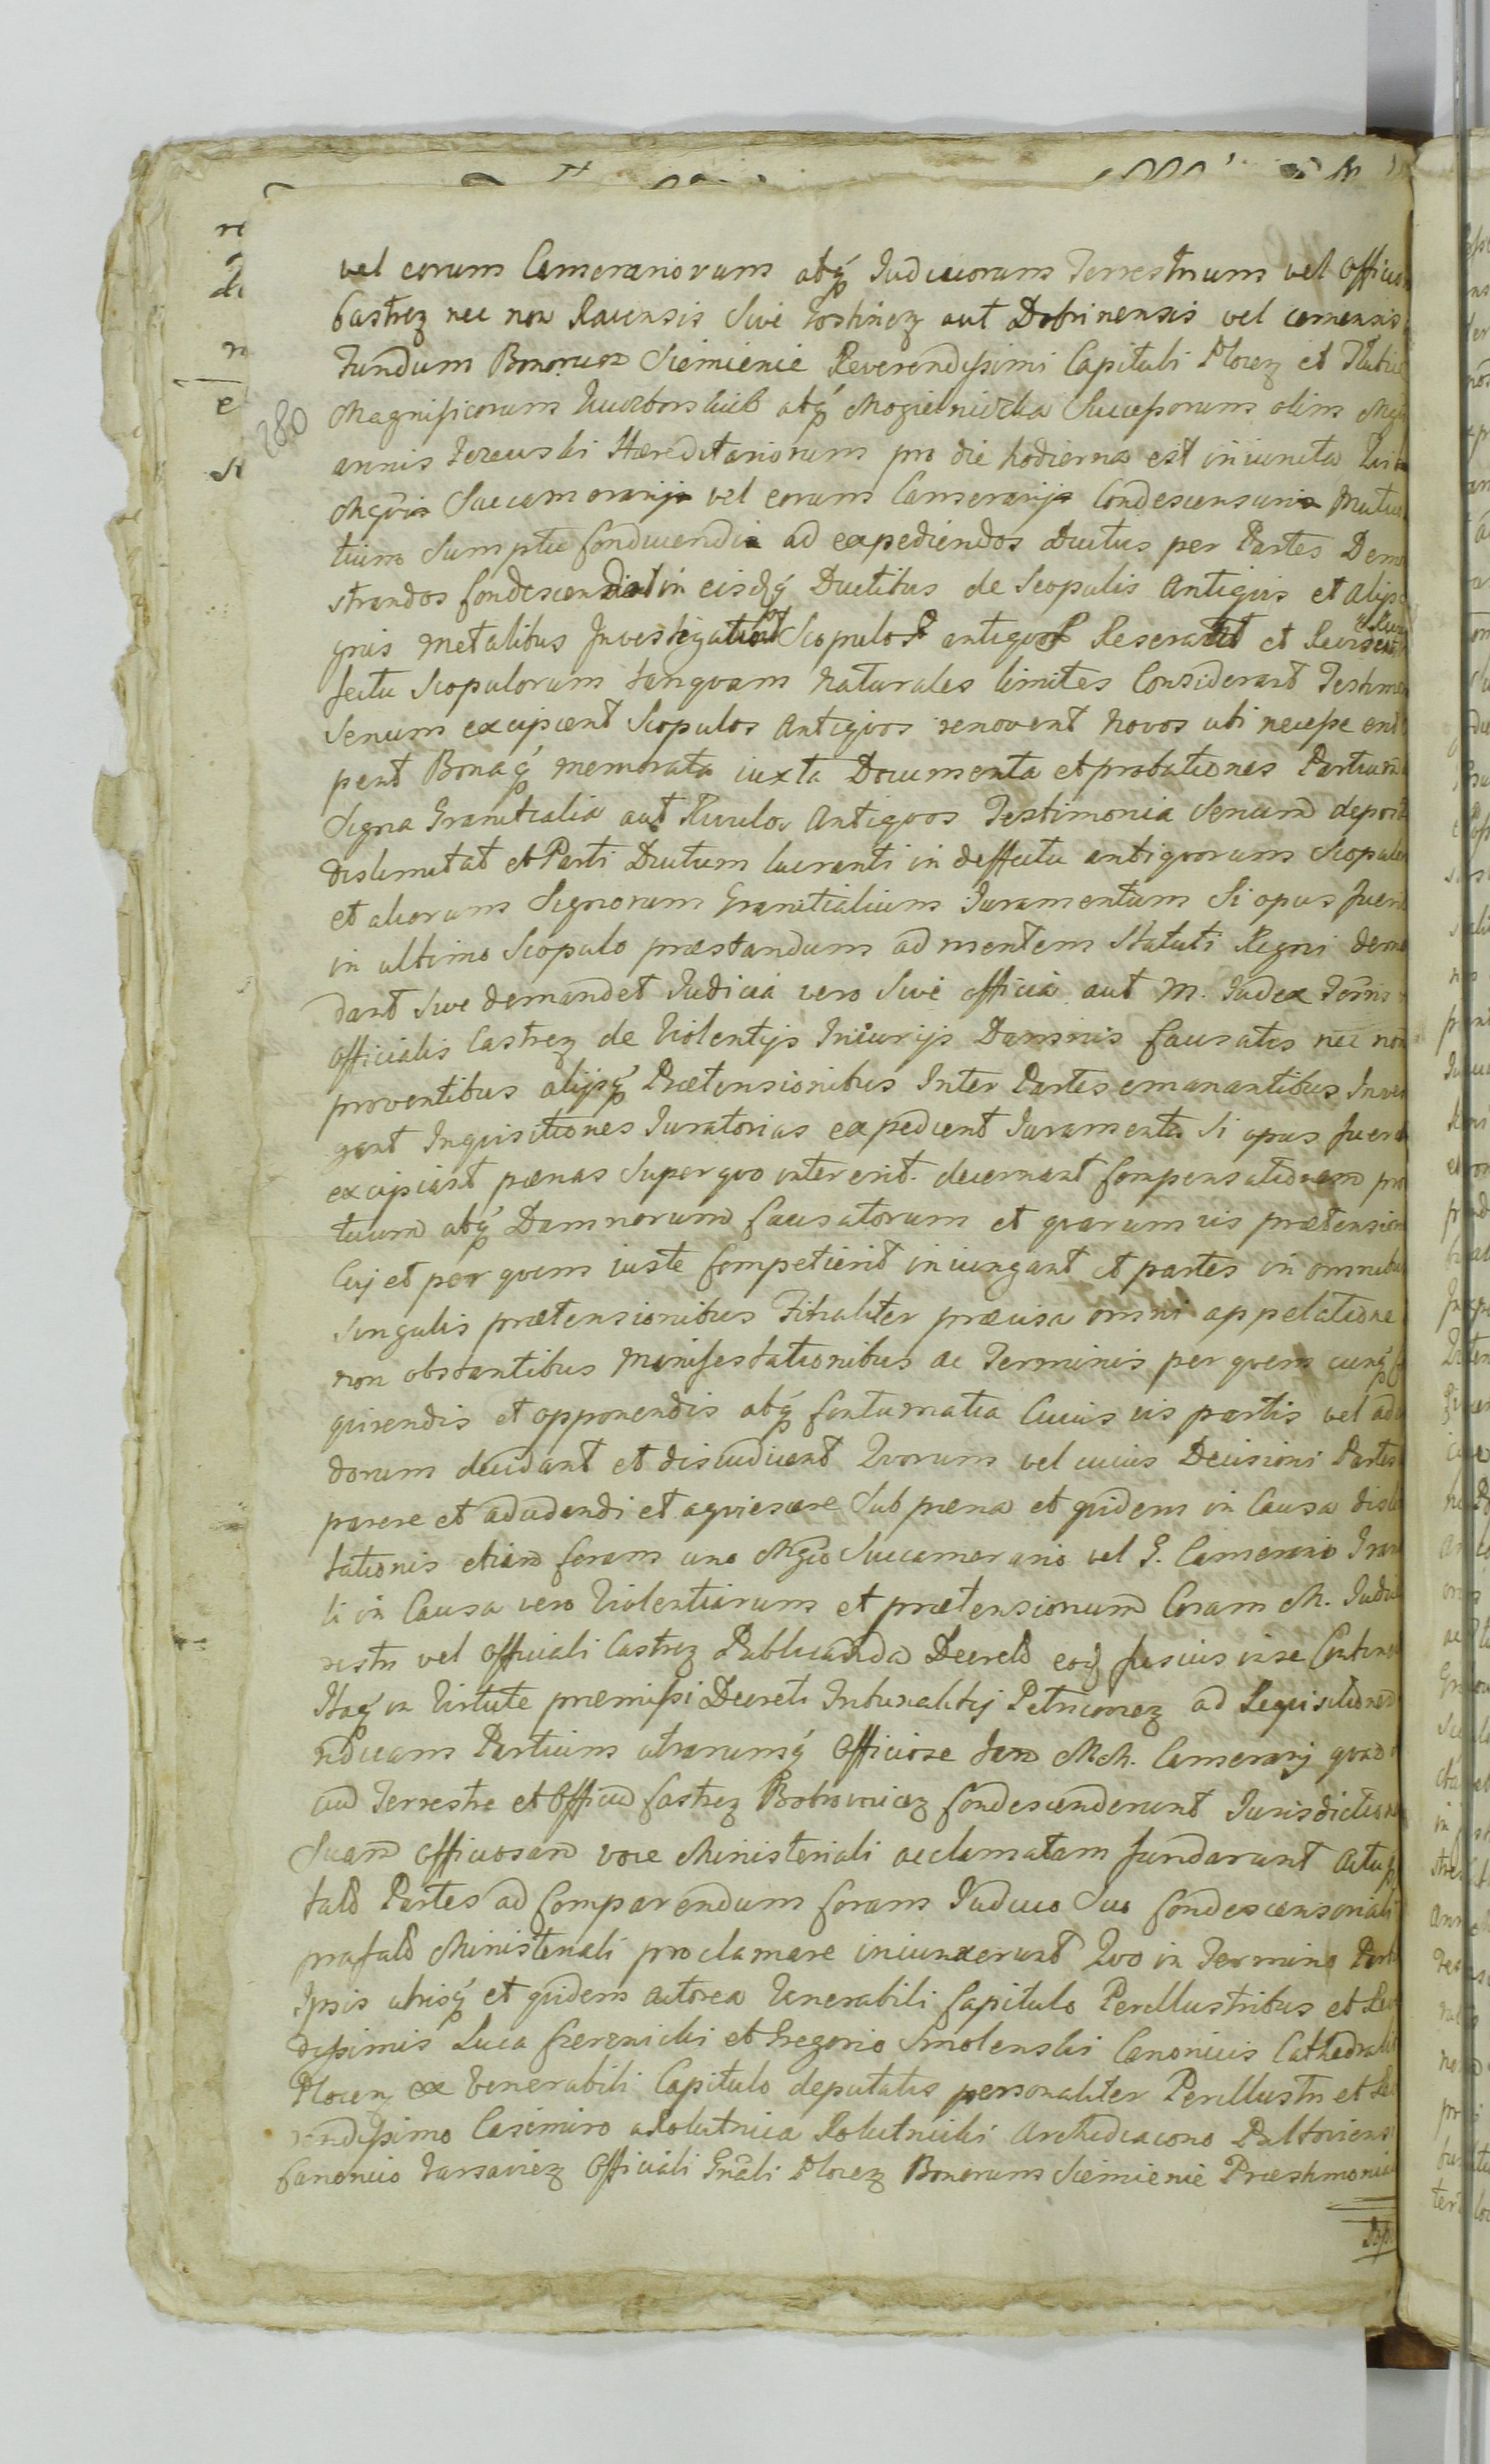 vel eorum Camerariorum atq́ꝫ Iudiciorum Terrestrium vel Officio
Castreꝫ nec non Ravensis Sive Gostineꝫ aut Dobrinensis vel cemensis
Fundum Bonorum Siemienie Reverendissimi Capituli Ploceꝫ et
280
Magnificorum atq́ꝫ Mogielnicka Successorum olim Mgci
annis Jezewski Hæreditariorum pro die hodierna est iniuncta
Mgcis Succamerarijs vel eorum Camerarijs Condescensuris Mutuo
tium Sumptu Conducendis ad expediendos Ductus per Partes Demon
strandos Condescendant in eisdq́ Ductibus de Scopulis Antiqvis et alijs
gnis Metalibus Investigatis Scopulos antiqvos Reserabit et Revisent
fectu Scopulorum tanqvam Naturales limites Considerant Testimon
Senum excipient Scopulos Antiqvos renovent Novos ubi necesse erit
pent Bonaq́ꝫ memorata iuxta Documenta et probationes Partium
Signa Granitialia aut Rivulos Antiqvos Testimonia Senum deport
dislimitat et Parti Ductum lucranti in deffectu antiqvorum Scopulor
et aliorum Signorum Granitialium Iuramentum Si opus fuerit
in ultimo Scopulo præstandum ad mentem Statuti Regni dema
dant Sive demandet Iudicia vero Sive officia aut M. Iudex Terris
officialis Castreꝫ de Violentijs Iniurijs Damnis Causatis nec non
proventibus alijsq́ꝫ Prætensionibus Inter Partes emanantibus Inves
gant Inqvisitiones Iuratorias expedient Iuramenta Si opus fuerit
excipiant pœnas Super qvo intererit decernant Compensationem pro
tuum atq́ꝫ Damnorum Causatorum et qvarum vis prætension
Cuj et per qvem iuste Competierit iniungant et partes in omnibus
Singulis prætensionibus Finaliter præcisa omni appelatione
non obstantibus Minifestationibus ac Terminis per qvem cunq́ꝫ
qvirendis et opponendis atq́ꝫ Contumatia Cuius vis partis vel ad
dorum decidant et disiudicent Qvorum vel cuius Decisioni Partes
parere et adudendi et aqviescere Sub pœna et qvidem in Causa disli
tationis etiam Coram uno Mgco Succamerario vel G. Camerario Gran
li in Causa vero Violentiarum et prætensionum Coram M. Iudice
restri vel Officiali Castreꝫ Publicanda Decreto eoꝫ fusius in se Contine
Itaq́ in Virtute præmissi Decreti Tribunalitij Petricoveꝫ ad Reqvisitionem
nducam Partium utrarumq́ Officiose Idem MM. Camerarij qvam
cium Terrestre et Officium Castreꝫ Bobrovniceꝫ Condescenderunt Iurisdictione
Suam Officiosam voce Ministeriali acclamatam fundarunt Actup
tals Partes ad Comparendum Coram Iudicio Suo Condescensoriali
præfato Ministeriali proclamare iniunxerunt Qvo in Termino Part
Ipsis utrisq́ꝫ et qvidem Actorea Venerabili Capitulo Perillustribus et Reve
dissimis Luca Czerenicki et Gregorio Smolenski Canonicis Cathedralib
Plocen ex Venerabili Capitulo deputatis personaliter Perillustri et Re
rendissimo Casimiro a Rokitnica Rokitnicki Archidiacono Pultoviens
Canonico Varsavieꝫ Officiali Gnali Ploceꝫ Bonorum Siemienie Præstimonia